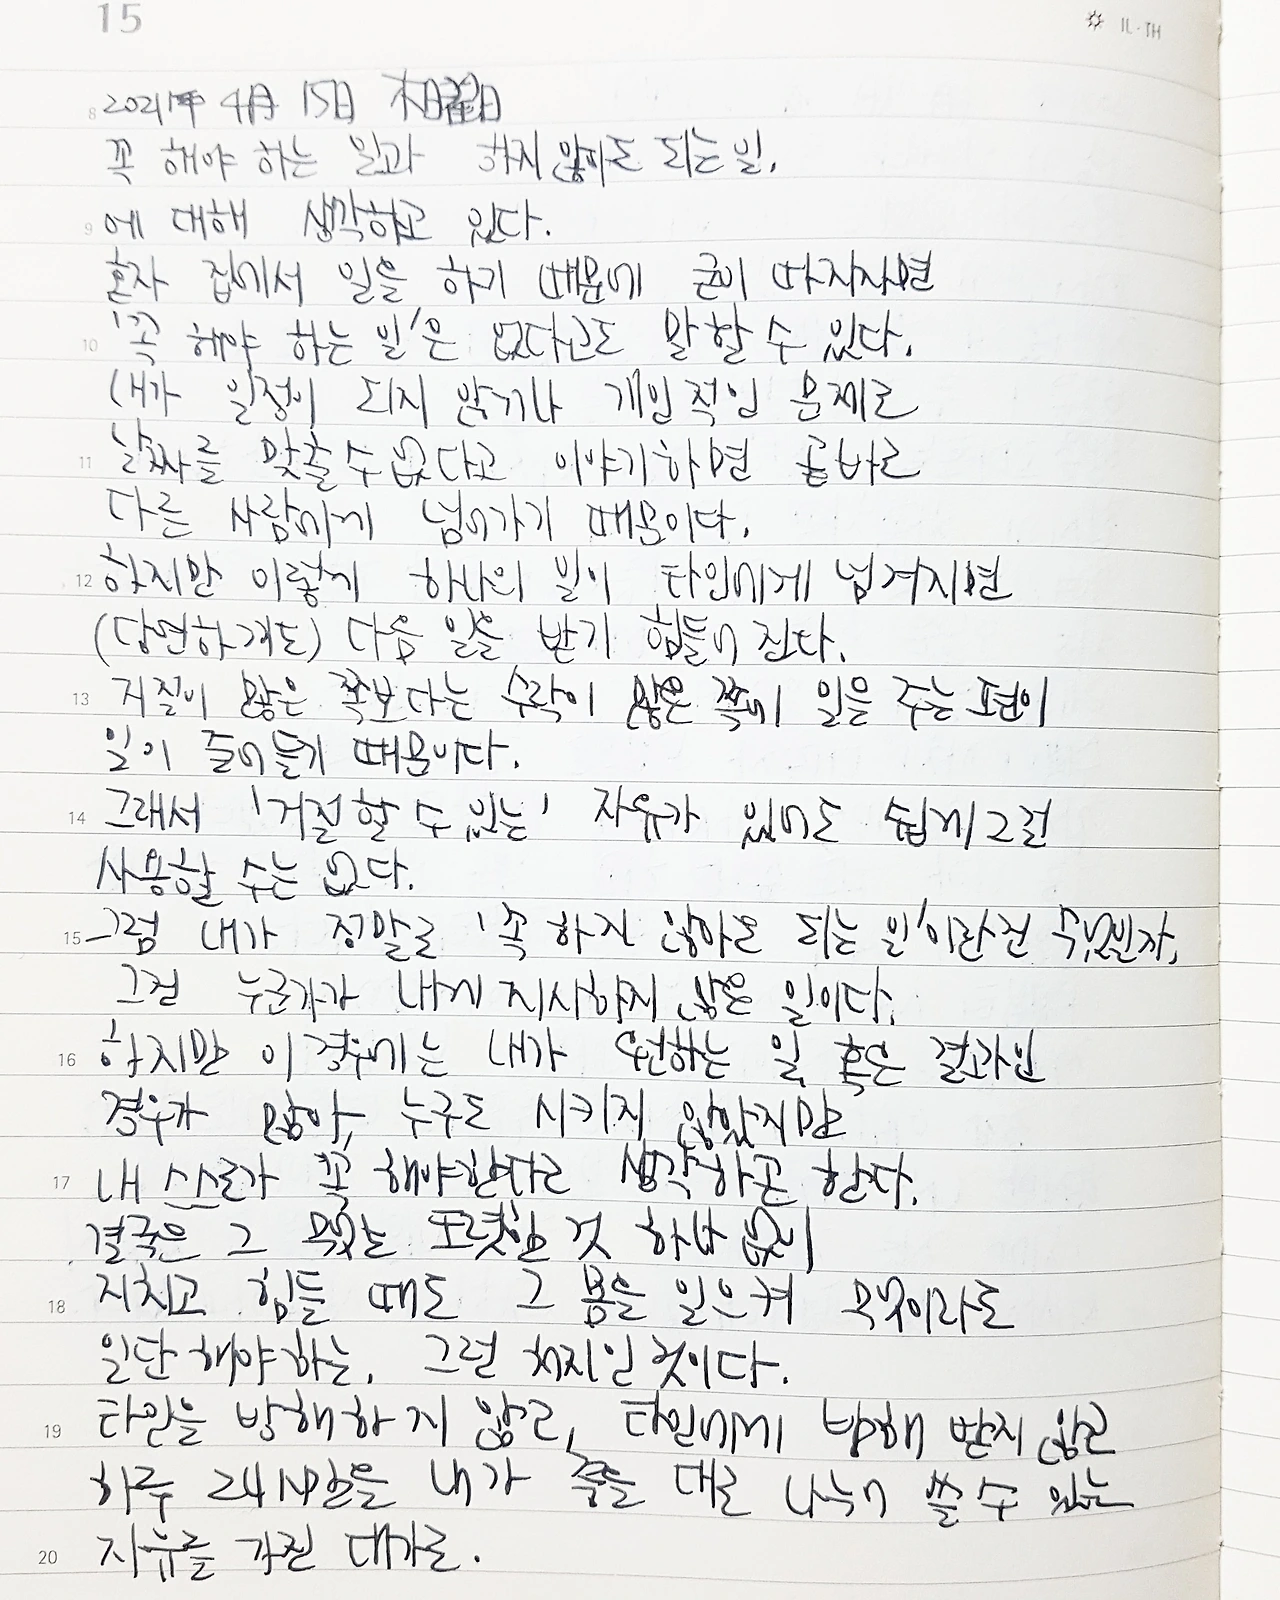 15
☼ IL·TH
8 2021年 4月 15日 木曜日
꼭 해야 하는 일과 하지 않아도 되는 일.
9 에 대해 생각하고 있다.
혼자 집에서 일을 하기 때문에 굳이 따지자면
10 '꼭 해야 하는 일'은 없다고도 말할 수 있다.
(내가 일정이 되지 않거나 개인적인 문제로
11 날짜를 맞출 수 없다고 이야기하면 곧바로
다른 사람에게 넘어가기 때문이다.
12 하지만 이렇게 하나의 일이 타인에게 넘겨지면
(당연하게도) 다음 일을 받기 힘들어 진다.
13 거절이 많은 쪽보다는 수락이 많은 쪽에 일을 주는 편이
일이 줄어들기 때문이다.
14 그래서 '거절할 수 있는' 자유가 있어도 쉽게 그걸
사용할 수는 없다.
15 그럼 내가 정말로 '꼭 하지 않아도 되는 일'이란건 무엇인가,
그건 누군가가 내게 지시하지 않은 일이다.
16 하지만 이 경우에는 내가 원하는 일, 혹은 결과인
경우가 많아, 누구도 시키지 않았지만
17 내 스스로가 꼭 해야한다로 생각하곤 한다.
결국은 그 또렷한 것 하나 없이
18 지치고 힘들 때도 그 몸을 일으켜 무엇이라도
일단 해야하는, 그런 처지인 것이다.
19 타인을 방해하지 않고, 타인에게 방해 받지 않고
하루 24시간을 내가 대로 나누어 쓸 수 있는
20 자유를 가진 대가로.